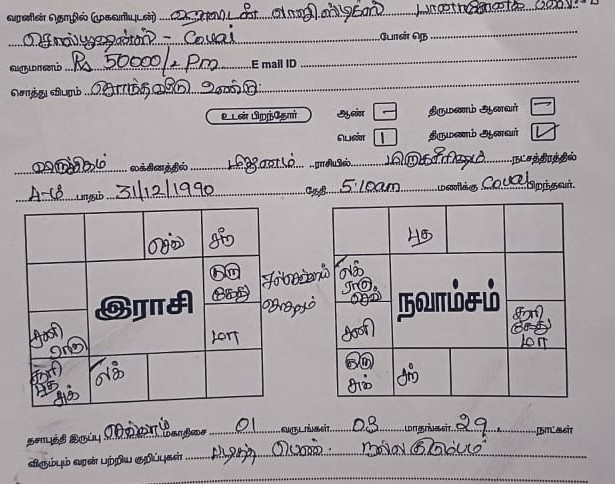 வரனின் தொழில் (முகவரியுடன்)
சொல்யூஷன்ஸ் - Covai போன் நெ
வருமானம் Rs 50000/- Pm E mail ID
சொத்து விபரம் சொந்தவீடு உண்டு.
உடன் பிறந்தோர் ஆண் - திருமணம் ஆனவர் -
பெண் 1 திருமணம் ஆனவர் ✓
விருச்சிகம் லக்கினத்தில் மிதுனம் ராசியில் மிருகசீரிஷம் நட்சத்திரத்தில்
4-ம் பாதம் 31/12/1990 தேதி 5.10am மணிக்கு Covai பிறந்தவர்.
செவ் சந் புத
குரு கேது லக் ராகு செவ்
இராசி நவாம்சம்
சனி ராகு மா சனி சூரி கேது மா
சூரி புத சுக் லக் குரு சுக் சந்
தசாபுத்தி இருப்பு செவ்வாய் மகாதிசை 01 வருடங்கள் 03 மாதங்கள் 29 நாட்கள்
விரும்பும் வரன் பற்றிய குறிப்புகள் படித்த பெண். நல்ல குடும்பம்